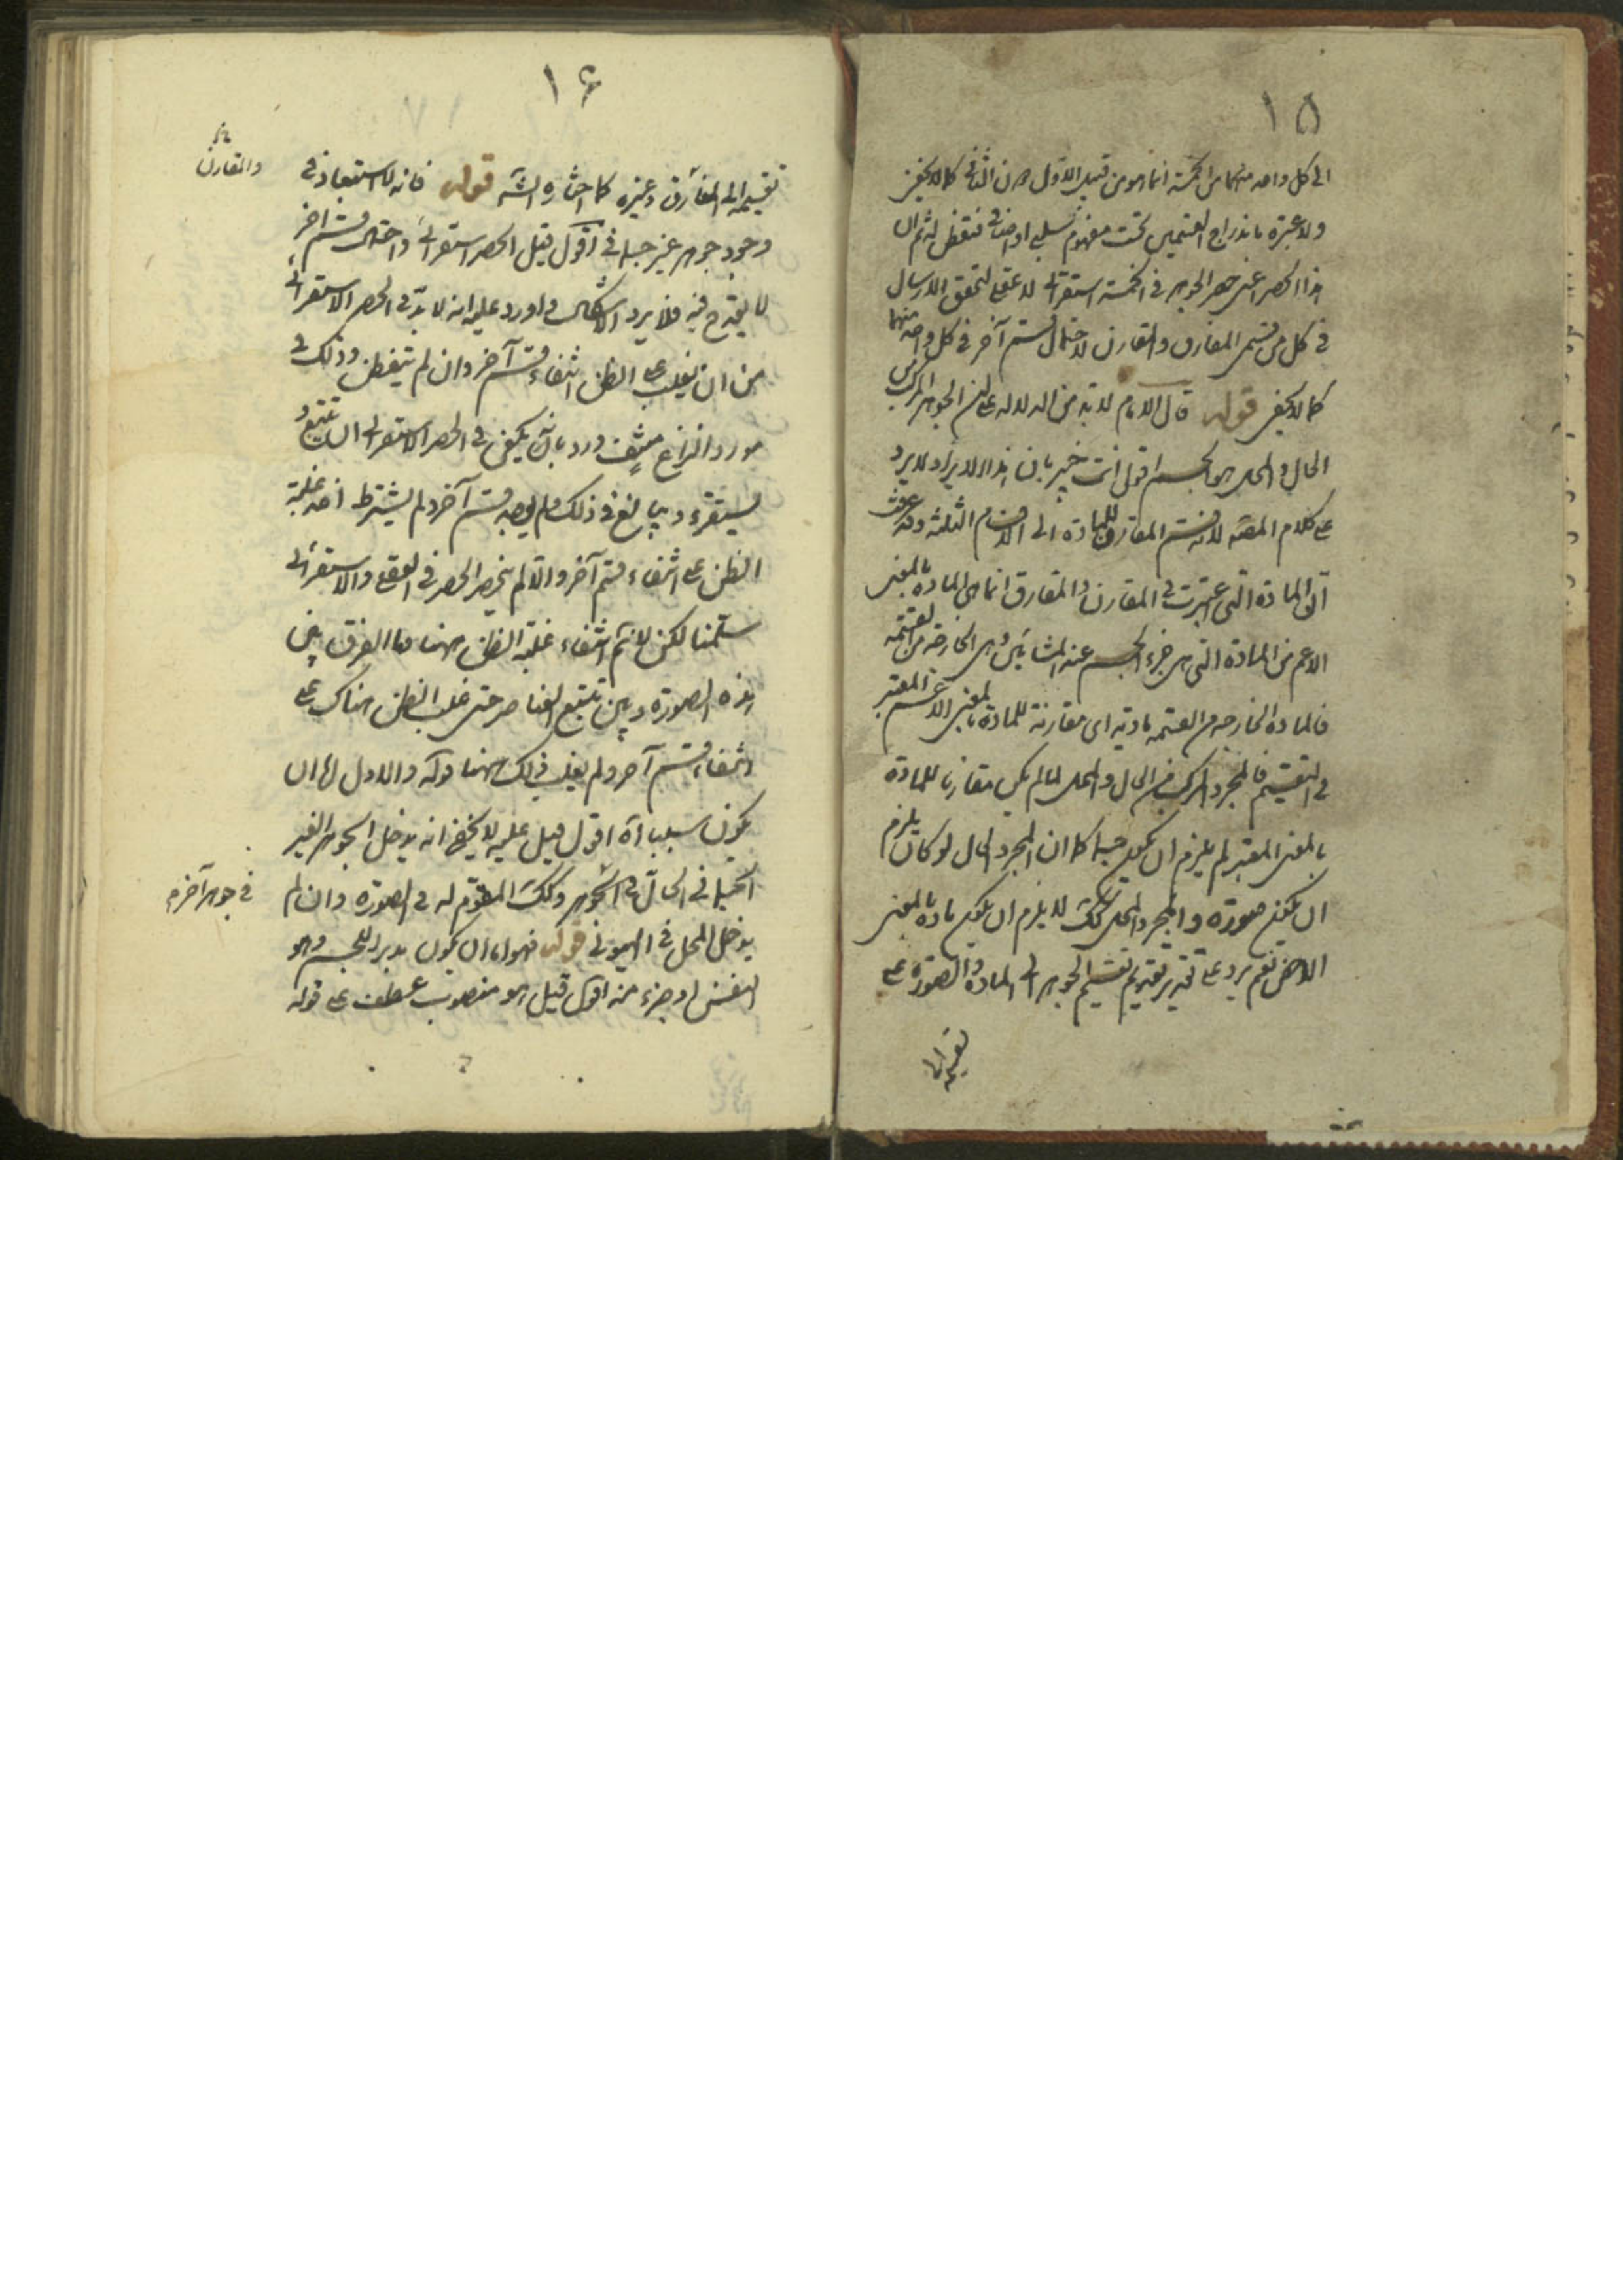 ١٥
الى كل واحد منهما من الخمسة انما هو من قبيل الاول دون الثانى كما لا يخفى
ولا عبرة باندراج القسمين تحت مفهوم سلبى او اضافى فتفطن ثم ان
هذا الحصر اعنى حصر الجوهر فى الخمسة استقرائى لا عقلى لتحقق الارسال
فى كل من قسمى المفارق والمقارن لاحتمال قسم آخر فى كل واحد منهما
كما لا يخفى قوله قال الامام لا بد من الدلالة على ان الجوهر المركب من
الحال والمحل هو الجسم اقول انت خبير بان هذا الايراد لا يرد
على كلام المصنه لانه قسم المقارن للمادة الى الاقسام الثلثة وقد عرفت
ان المادة التى اعتبرت فى المقارن والمفارق انما هى المادة بالمعنى
الاعم من المادة التى هى جزء الجسم عند المشائين وهى الخارجة من القسمة
فالمادة الخارجة من القسمة مادية اى مقارنة للمادة بالمعنى الاعم المعتبر
فى التقسيم فالمجرد المركب من الحال والمحل لما لم يكن مقارنا للمادة
بالمعنى المعتبر لم يلزم ان يكون جسما كما ان المجرد الحال لو كان يلزم
ان يكون صورة والمجرد المحل كك لا يلزم ان يكون مادة بالمعنى
الاخص نعم يرد على تقدير تقديم تقسيم الجوهر الى المادة والصورة على
تقسيمه الى
١٦
تقسيمه الى المفارق وغيره كما اختاره الشه قوله فانه لا استبعاد فى
والمقارن
وجود جوهر غير جسمانى اقول قيل الحصر استقرائى واحتمال قسم آخر
لا يقدح فيه فلا يرد الاشكال واورد عليه انه لا بد فى الحصر الاستقرائى
من ان يغلب على الظن انتفاء قسم آخر وان لم يتفطن وذلك فى
مورد النزاع منتف ورد بانه يكفى فى الحصر الاستقرائى ان يتتبع و
يستقرء ويبالغ فى ذلك فلم يوجد قسم آخر ولم يشترط احد غلبة
الظن على انتفاء قسم آخر والا لم ينحصر الحصر فى العقلى والاستقرائى
سلمنا لكن لا نم انتفاء غلبة الظن ههنا وما الفرق بين
هذه الصورة وبين تتبع العناصر حتى غلب الظن هناك على
انتفاء قسم آخر ولم يغلب ذلك ههنا قوله والاول اما ان
يكون سببا آه اقول قيل عليه لا يخفى انه يدخل الجوهر الغير
الجسمانى الحال فى الجوهر وكك المقوم له فى الصورة وان لم
فى جوهر آخر
يدخل المحل فى الهيولى قوله فهو اما ان يكون مدبرا للجسم وهو
النفس او جزء منه اقول قيل هو منصوب عطف على قوله